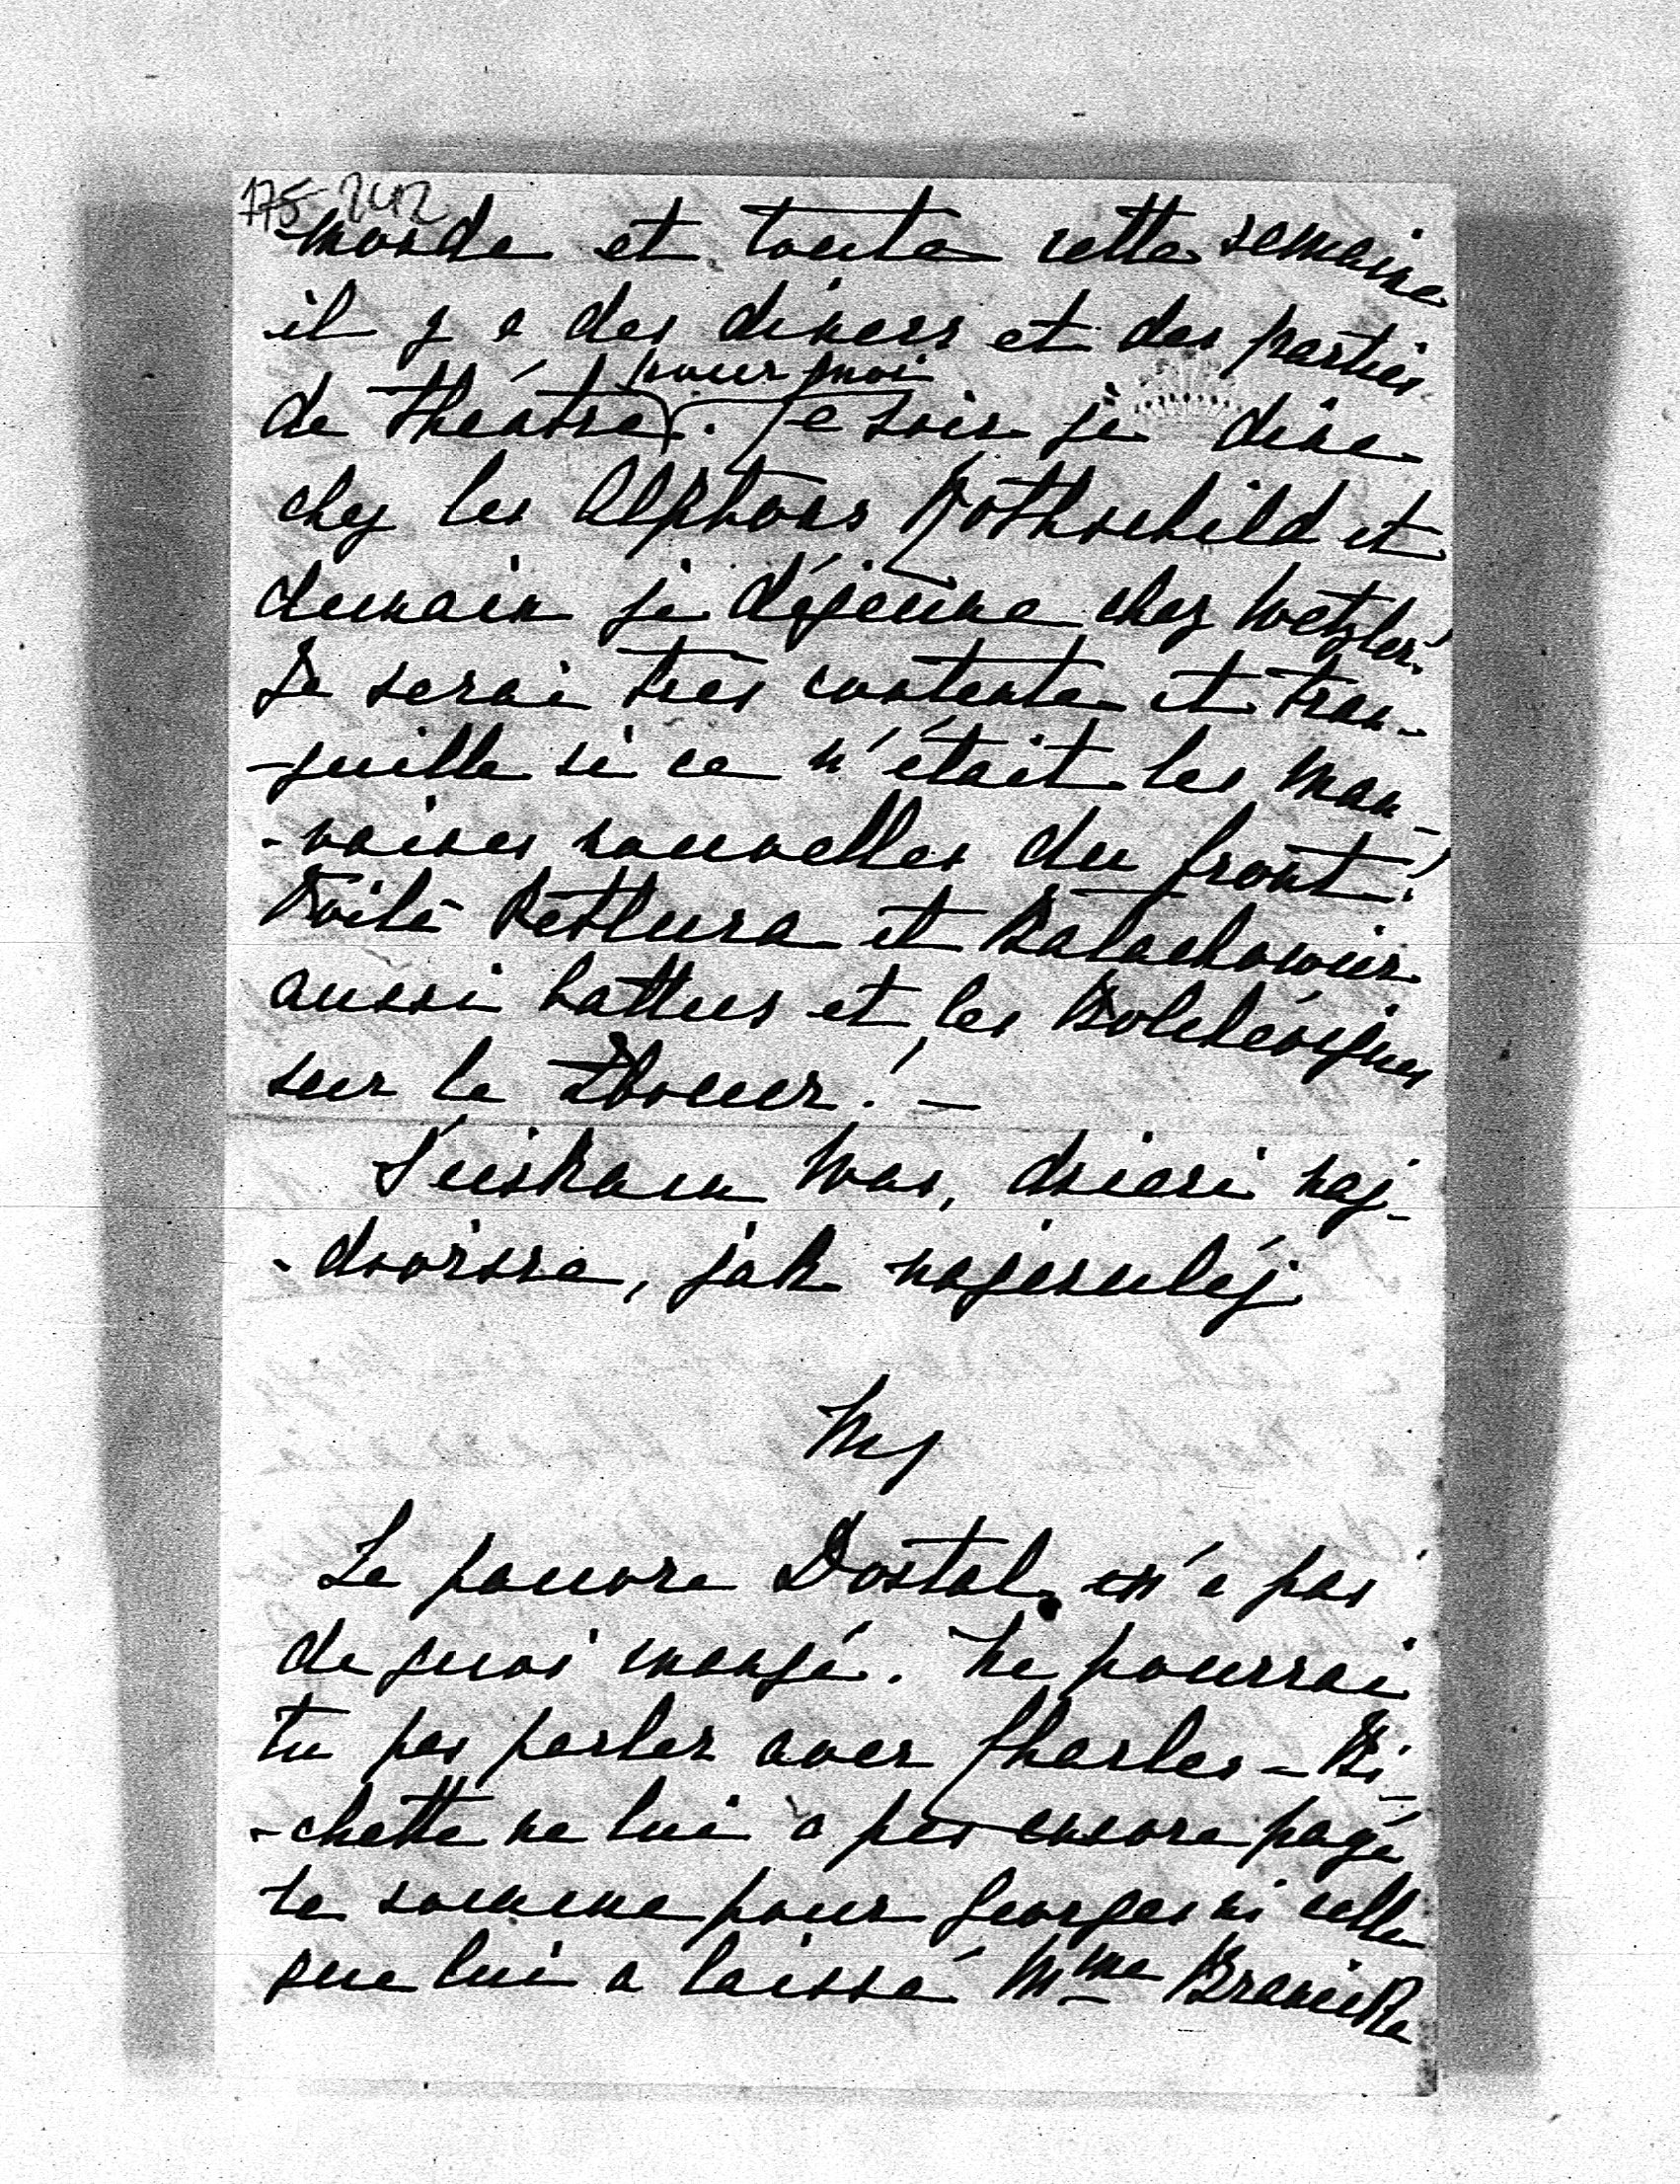 175-242
monde et toute cette semaine
il y a des diners et des parties
de théâtre pour moi. Ce soir je dine
chez les Alphons Rothschild et
demain je déjeune chez Wetzler!
Je serai très contente et tran-
-quille si ce n'était les mau-
-vaises nouvelles du front!
Voilà Petlura et Balachowicz
aussi battus et les Bolchéviques
sur le Zbrucz! –
Sciskam Was, dzieci naj-
-droższe, jak najczulej
My
Le pauvre Dostal n'a pas
de quoi mangé. Ne pourrai
tu pas parler avec Charles – Bi-
-chette ne lui a pas encore payé
la somme pour Georges ni celle
que lui a laissé Mme Branicka